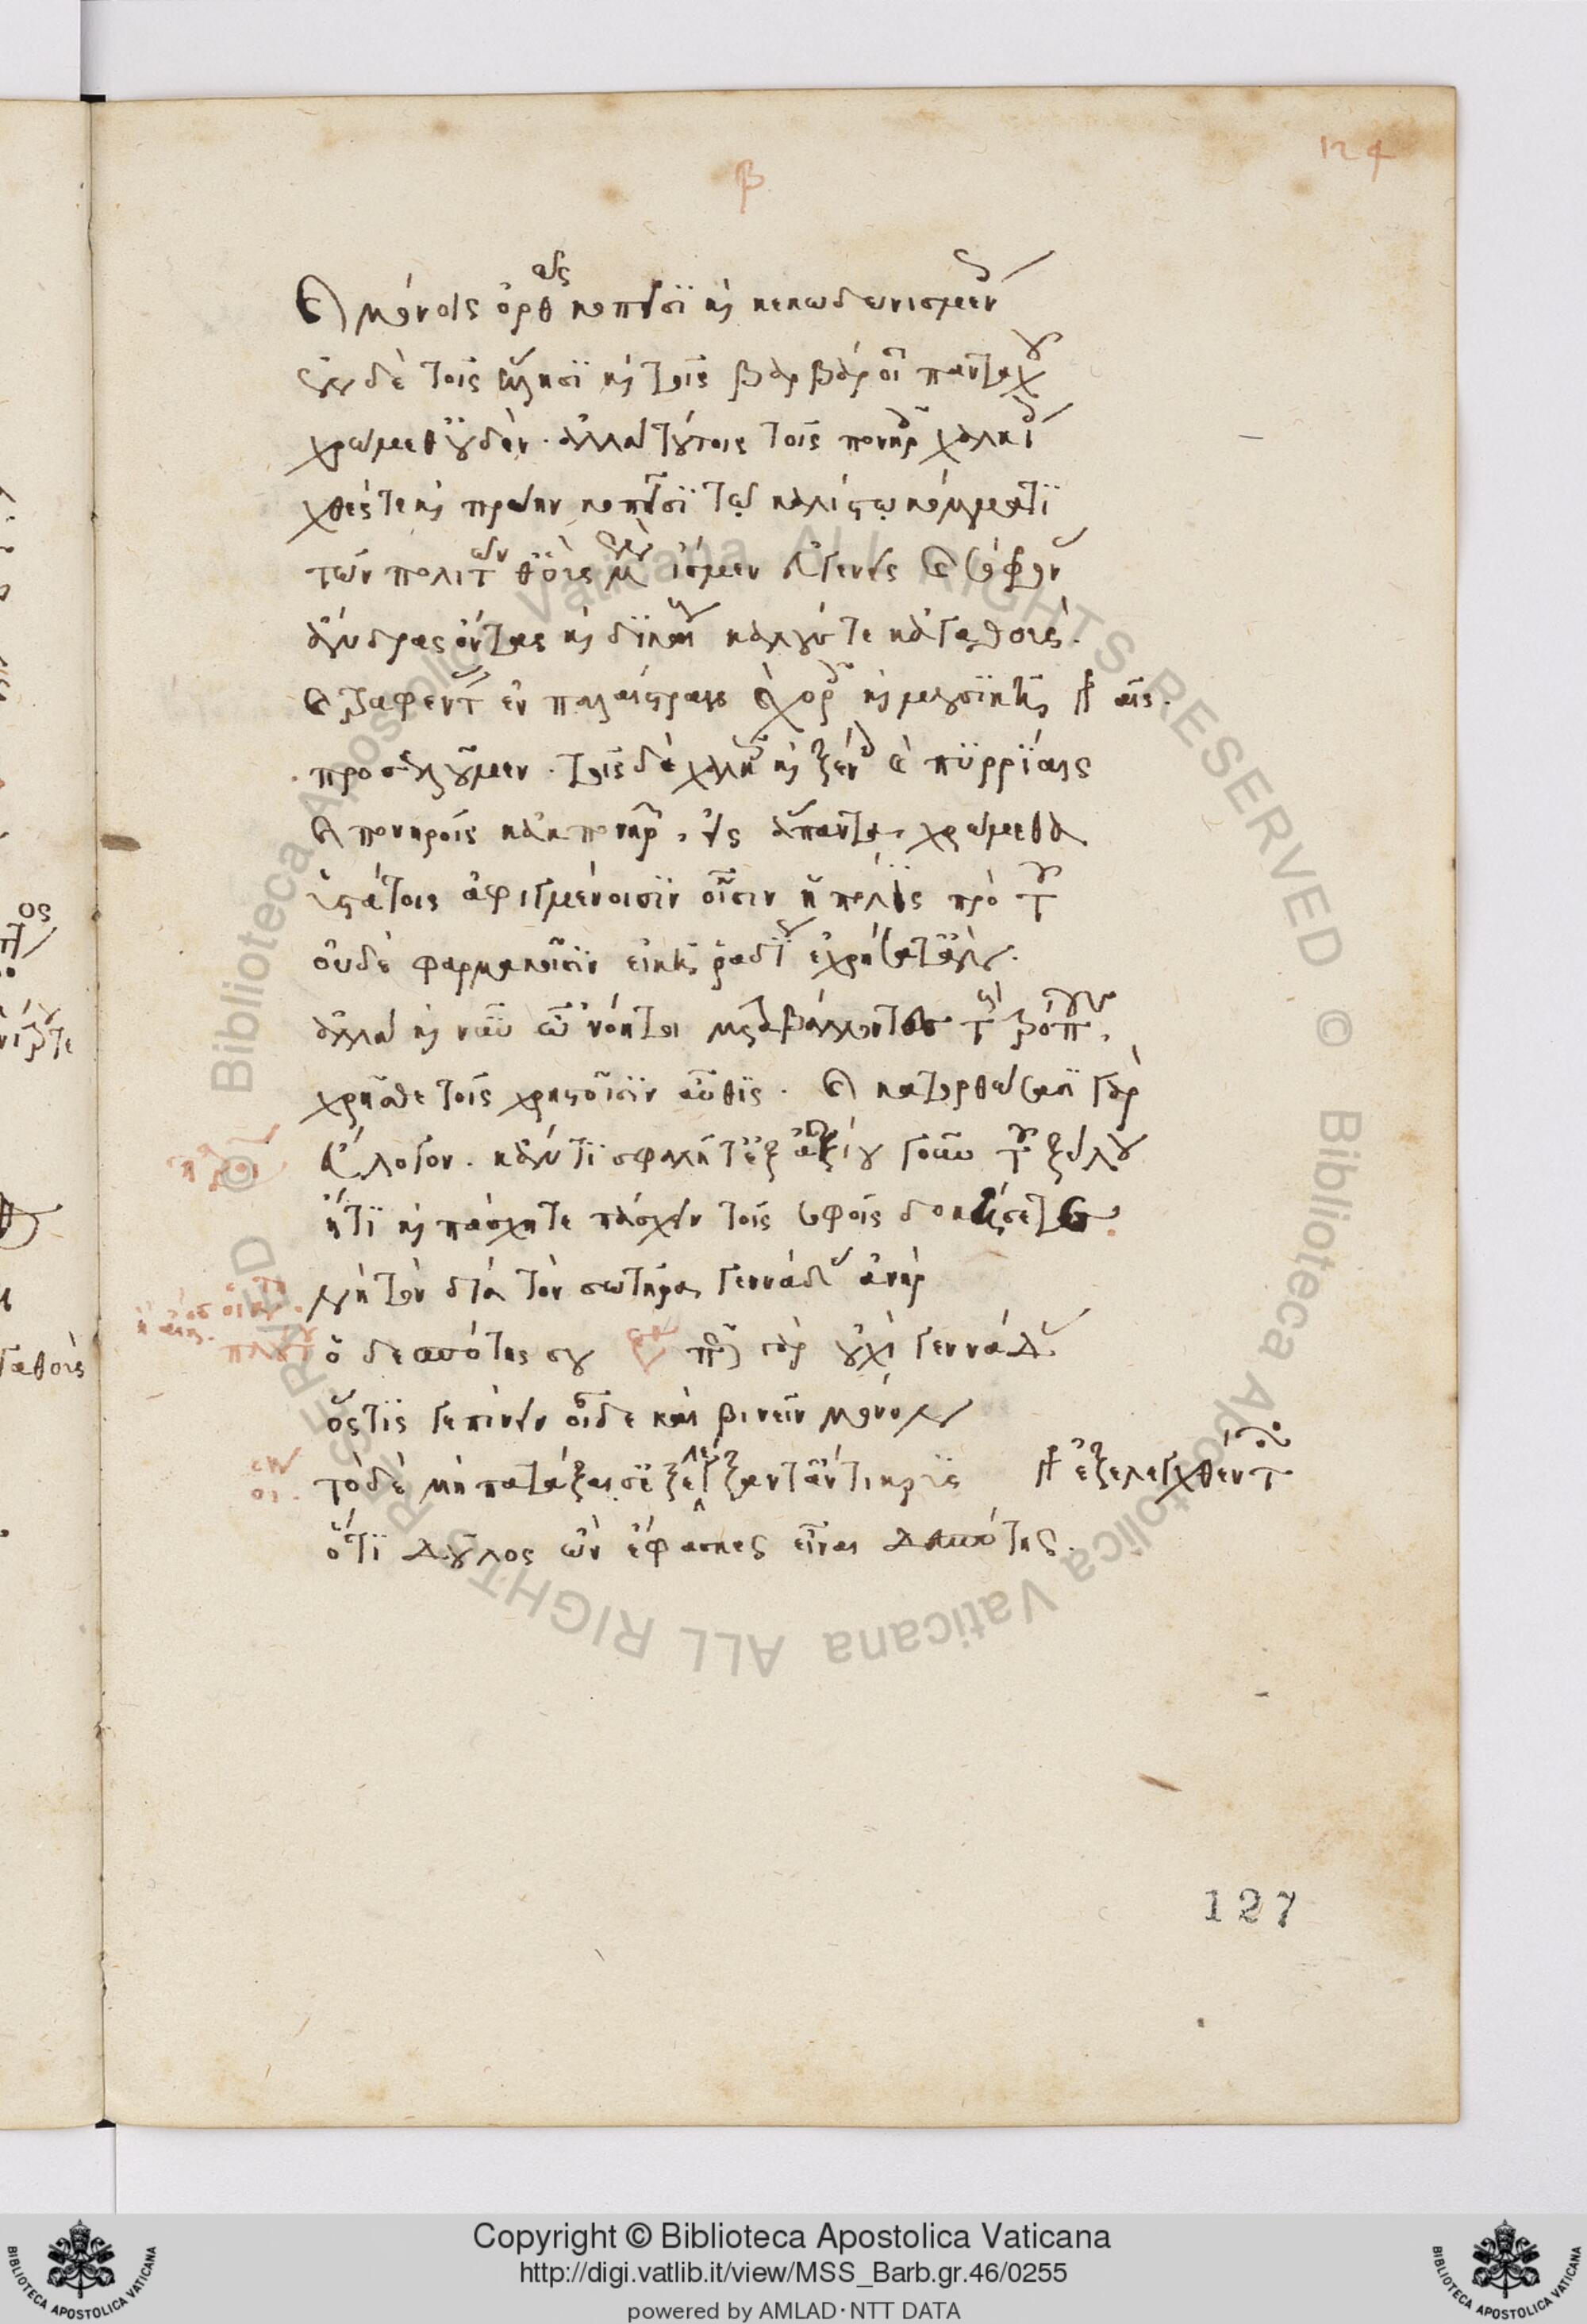 β
124
καὶ μόνοις ὀρθῶς κοπεῖσι καὶ κεκωδωνισμένοις
ἔν δὲ τοῖς ἕλλησι καὶ τοῖς βαρβάροισι πανταχοῦ
χρώμεθ' οὐδέν. ἀλλὰ τούτοις τοῖς πονηροῖς χαλκίοις
χθές τε καὶ πρώην κοπεῖσι τῷ κακίστῳ κόμματι
τῶν πολιτῶν θ' οὓς μὲν ἴσμεν εὐγενεῖς καὶ σώφρονας
ἄνδρας ὄντας καὶ δικαίους καλούς τε κἀγαθούς.
καὶ τραφέντας ἐν παλαίστραις καὶ χοροῖς καὶ μουσικῆς
προσελοῦμεν. τοῖς δὲ χαλκοῖς καὶ ξένοις καὶ πυρρίαις
καὶ πονηροῖς κἀκ πονηρῶν, εἰς ἅπαντα χρώμεθα
ὑστάτοις ἀφιγμένοισιν οἷσιν ἡ πόλις πρὸ τοῦ
οὐδὲ φαρμακοῖσιν εἰκῆ ῥαδίως ἐχρήσατ' ἄν.
ἀλλὰ καὶ νῦν ὦ 'νόητοι μεταβάλλοντες τοὺς τρόπους,
χρῆσθε τοῖς χρηστοῖσιν αὖθις. καὶ κατορθώσασι γὰρ
εὔλογον. κἄν τι σφαλῆτ' ἐξ ἀξίου γοῦν τοῦ ξύλου
ἤτι καὶ πάσχητε πάσχειν τοῖς σοφοῖς δοκήσετε.
νὴ τὸν δία τὸν σωτῆρα γεννάδας ἀνὴρ
ὁ δεσπότης σου πῶς γὰρ οὐχὶ γεννάδας
ὅστις γε πίνειν οἶδε καὶ βινεῖν μόνον
τὸ δὲ μὴ πατάξαι σ' ἐξελέγξαντ' ἄντικρυς ἐξελεγχθέντα
ὅτι δοῦλος ὢν ἔφασκες εἶναι δεσπότης.
127
Copyright © Biblioteca Apostolica Vaticana
http://digi.vatlib.it/view/MSS_Barb.gr.46/0255
powered by AMLAD·NTT DATA